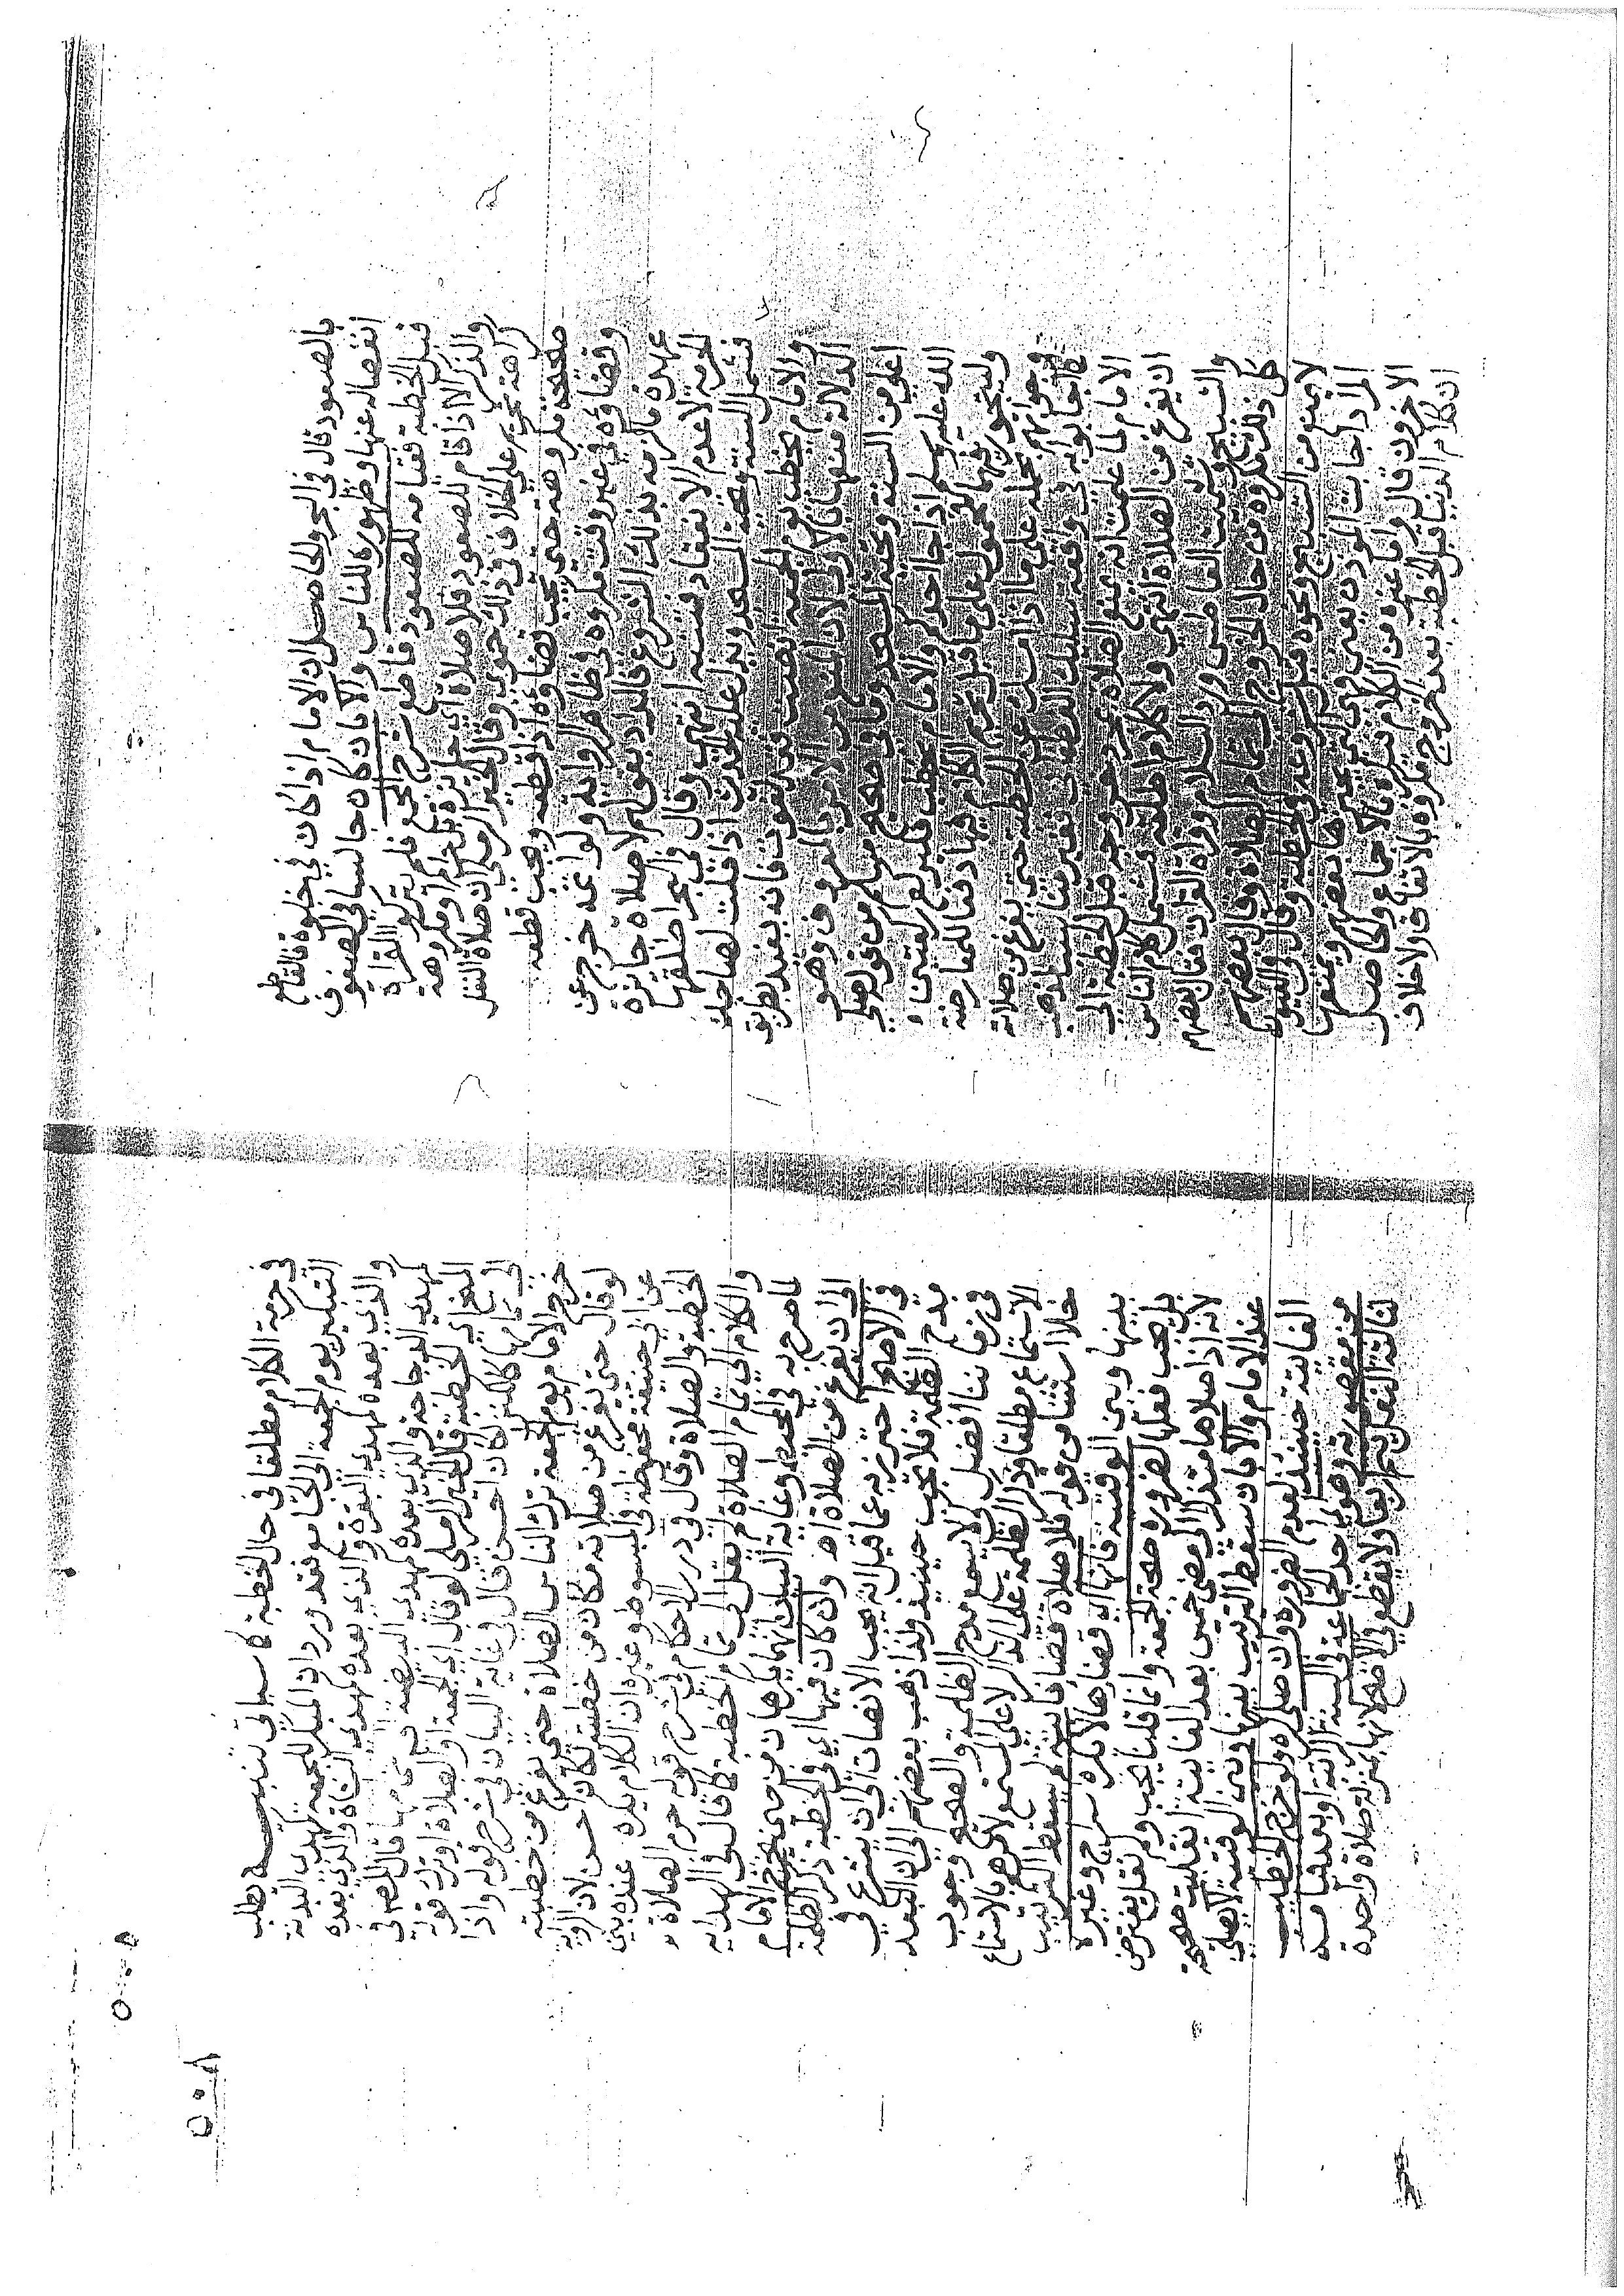 بالصعود قال في البحر والحاصل ان الامام اذا كان في خلوة فالقاطع
انفصاله عنها وظهوره للناس والا بان كان جالسا في الصفوف
قبل الخطبة فقيامه للصعود قاطع شرح المجمع فلم يتركوا القراة
والذكر الا اذا قام للصعود فلا صلاة اي جائزة او مكروهة
كراهة تحريم على الخلاف في ذلك حموي وقال الخير الرملي ان صلاة النفل
صحيحة مكروهة حتى يجب قضاؤه اذا قطعه ويجب قطعه
وقضاؤه في غير وقت مكروه في ظاهر الرواية ولو اتمه خرج عن
عهدة ما لزمه بذلك الشروع فالمراد بقولهم لا صلاة جائزة
الحرمة لا عدم الانعقاد فتنبه انتهى وقال في البحر اطلقها
فشمل السنة وتحية المسجد ويدل عليه الحديث اذا قلت لصاحبك
والامام يخطب يوم الجمعة انصت فقد لغوت فانه يفيد بطريق
الدلالة منعهما بالاولى لان المنع من الامر بالمعروف وهو
اعلى من السنة وتحية المسجد وما في صحيح مسلم من قوله صلى
الله عليه وسلم اذا جا احدكم والامام يخطب فليركع ركعتين
وليتجوز فيهما فمحمول على ما قبل تحريم الكلام فيها دفعا للمعارضة
وجوابهم بحمله على ما اذا امسك عن الخطبة حتى يفرغ من صلاته
كما اجابوا به في واقعة سليك الغطفاني فغير مناسب لمذهب
الامام لما علمت انه يمنع الصلاة بمجرد خروجه قبل الخطبة الى
ان يفرغ من الصلاة انتهى ولا كلام اطلقه فشمل كلام الناس
والتسبيح وتشميت العاطس ورد السلام وقراة القران فقال بعضهم
كل ذلك مكروه من حال الخروج الى تمام الصلاة وقال بعضهم
لا يمنع من التسبيح ونحوه قبل الشروع في الخطبة وقال في العيون
المراد اجابة الموذن يعني في غيرها بعضهم ويمنعها
الاخرون قال واما غيره من الكلام فيكره بالاجماع والحاصل
ان كلام الدنيا قبل الخطبة بعد الخروج مكروه بالاتفاق ولا خلاف
في حرمة الكلام مطلقا في حال الخطبة كما سياتي تنبيه يطلب
التبكير يوم الجمعة الى الجامع فقد ورد ان المبكر للجمعة كمهدي البدنة
والذي بعده كمهدي البقرة والذي بعده كمهدي الشاة والذي بعده
كمهدي الدجاجة والذي بعده كمهدي البيضة الى تمامها قال المص في
المنح اي الخطبة قال الخير الرملي لو قال اي الجمعة او الصلاة او ترك قوله
الى تمامها كالكنز لكان احسن قال في غاية البيان في شرح قوله واذا
خرج الامام يوم الجمعة ترك الناس الصلاة حتى يفرغ من خطبته
لو قال حتى يفرغ من صلاته مكان من خطبته لكان احسن لان الرواية
عن ابي حنيفة محفوظة في المبسوط وغيره ان الكلام يكره عنده بين
الخطبة والصلاة وقال في درر الاحكام في شرح قوله حرم الصلاة
والكلام الى تمام الصلاة لم يقل الى تمام الخطبة كما قال في الهداية
لما صرح به في المحيط وغاية البيان انهما يكرهان من حين يخرج الامام
الى ان يفرغ من الصلاة اه وان كان فيها اي في الخطبة ذكر الظلمة
في الاصح احترز به عما قيل انه يجب الانصات الى ان يشرع في
مدح الظلمة فلا يجب حينئذ ولذا ذهب بعضهم الى ان البعد
في زماننا افضل كي لا يسمع مدح الظلمة والصحيح وجوب
الاستماع مطلقا وذكر الظلمة على الذاكر لا على المستمع لامرهم بالاستماع
خلا استثنا من قوله فلا صلاة قضا فايتة لم يسقط الترتيب
بينها وبين الوقتية فانها اي قضاها لا تكره سراج وغيره
بل يجب فعلها لضرورة صحة الجمعة وانما قلنا يجب ولم نقل يفترض
لانه اذا صلاها متذكرا الى مضي خمس بعد الفايتة انقلبت صحيحة
عند الامام والا بان سقط الترتيب بينها وبين الوقتية لا يصلي
الفايتة حينئذ لعدم الضرورة وان صلى كره ولو خرج الخطيب
من مقصورته وهو اي احد الجماعة في السنة الراتبة او بعد قيامه
لثالثة النفل يتم اربعا ولا يقطع في الاصح لانها بمنزلة صلاة واحدة
٥٠٨
٥٠٨